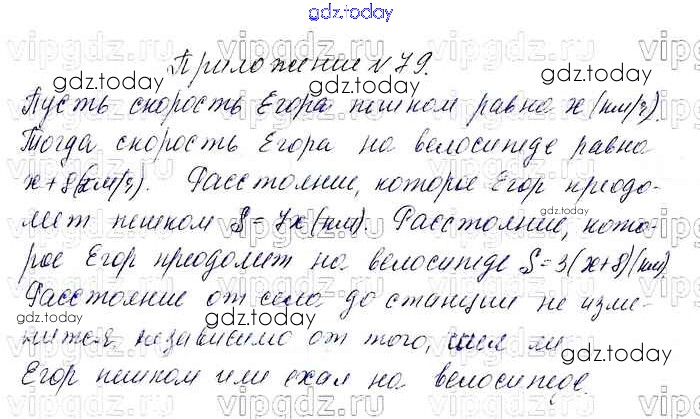 gdz.today
Приложение № 79.
Пусть скорость Егора пешком равна x (км/ч).
Тогда скорость Егора на велосипеде равна
x+8 (км/ч). Расстояние, которое Егор преодо-
леет пешком S = 7x (км). Расстояние, кото-
рое Егор преодолеет на велосипеде S = 3(x+8) (км).
Расстояние от села до станции не изме-
нится, независимо от того, шел ли
Егор пешком или ехал на велосипеде.